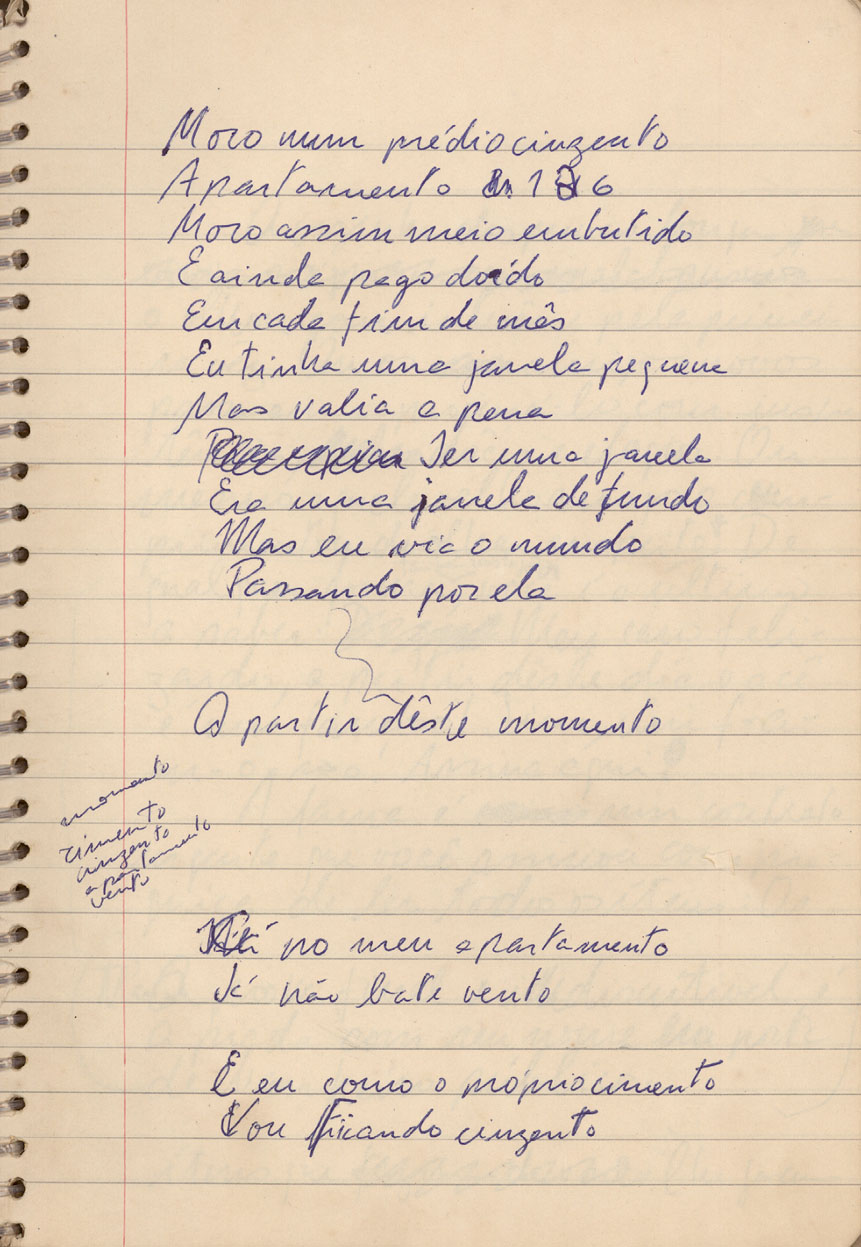 Moro num prédio cinzento
Apartamento 16
Moro assim meio embutido
E ainda pago doído
Em cada fim de mês
Eu tinha uma janela pequena
Mas valia a pena
Ter uma janela
Era uma janela de fundo
Mas eu via o mundo
Passando por ela
A partir dêste momento
momento
cimento
cinzento
apartamento
vento
no meu apartamento
Já não bate vento
E eu como o próprio cimento
Vou ficando cinzento